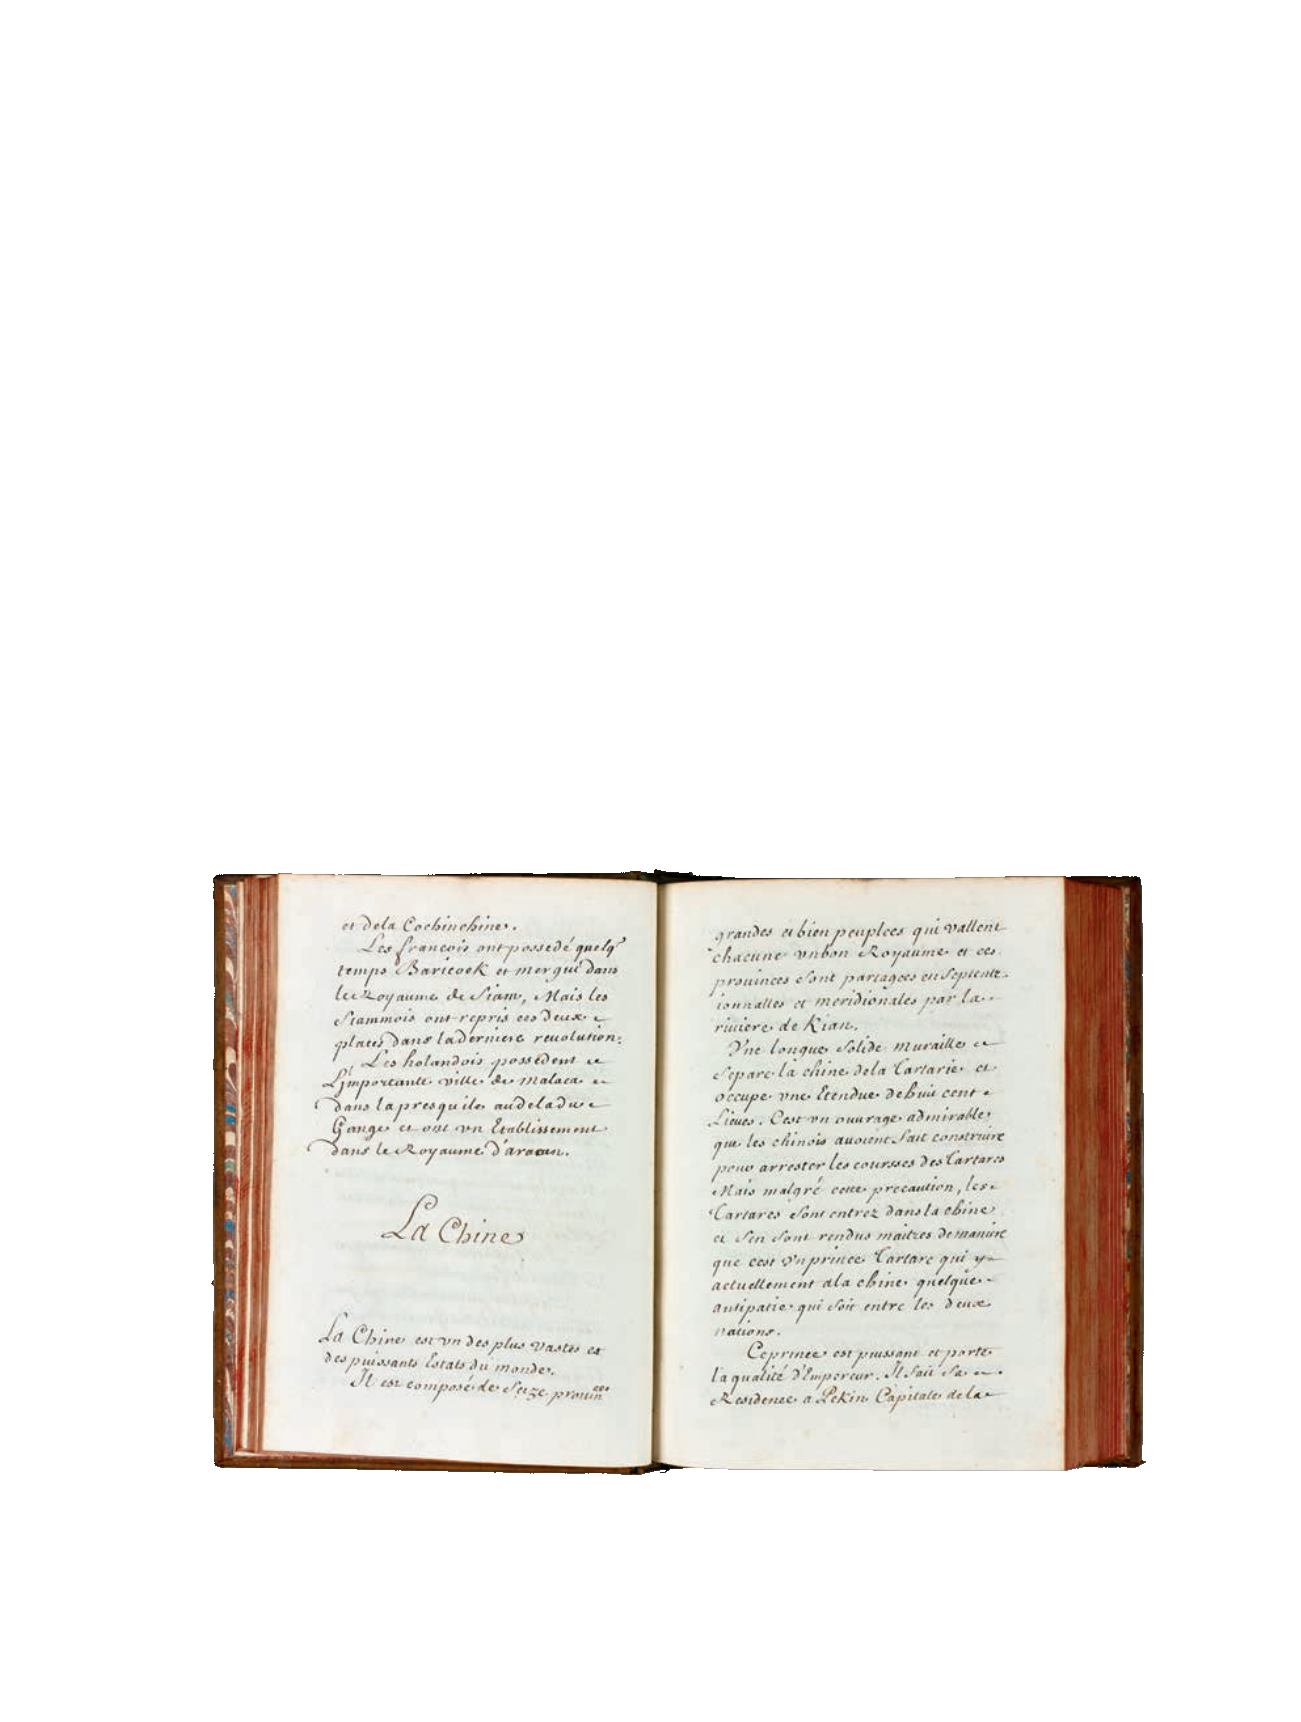 et dela Cochinchine.
Les francois ont possedé quelq̃
temps Baricoek et mergui dans
le Royaume de Siam, Mais les
Siammois ont repris ces deux
places dans laderniere reuolution:
Les holandois possedent
L'importante ville de Malaca
dans la presquile audeladu
Gange et ont vn Etablissement
dans le Royaume d'aracan.
La Chine
La Chine est vn des plus vastes et
des puissants Estats du monde.
Il est composé de Seize prouin^ces
grandes et bien peuplees qui vallent
chacune vnbon Royaume et ces
prouinces sont partagées en Septentr-
ionnalles et meridionales par la
riuiere de Kian.
Vne longue solide muraille
separe la chine dela Tartarie et
occupe vne Etendue dehuit cent
Lieues. Cest vn ouurage admirable
que les chinois auoient fait construire
pour arrester les coursses des Tartares
Mais malgré cette precaution, les
Tartares sont entrez dans la chine
et s'en sont rendus maitres demaniere
que cest vnprince Tartare qui y
actuellement ala chine quelque
antipatie qui soit entre les deux
nations.
Ceprince est puissant et porte
la qualité d'Empereur. Il fait Sa
Residence a Pekin Capitale de la